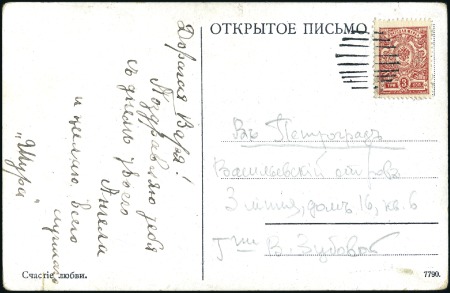 ОТКРЫТОЕ ПИСЬМО.
Дорогая Варя!
Поздравляю тебя
съ днемъ твоего
Ангела
и желаю всего
лучшаго
"Шура"
Въ Петроградъ
Васильевскій островъ
3 линія, домъ 16, кв. 6
Г-же В. Зубовой
3
Счастіе любви.
7790.